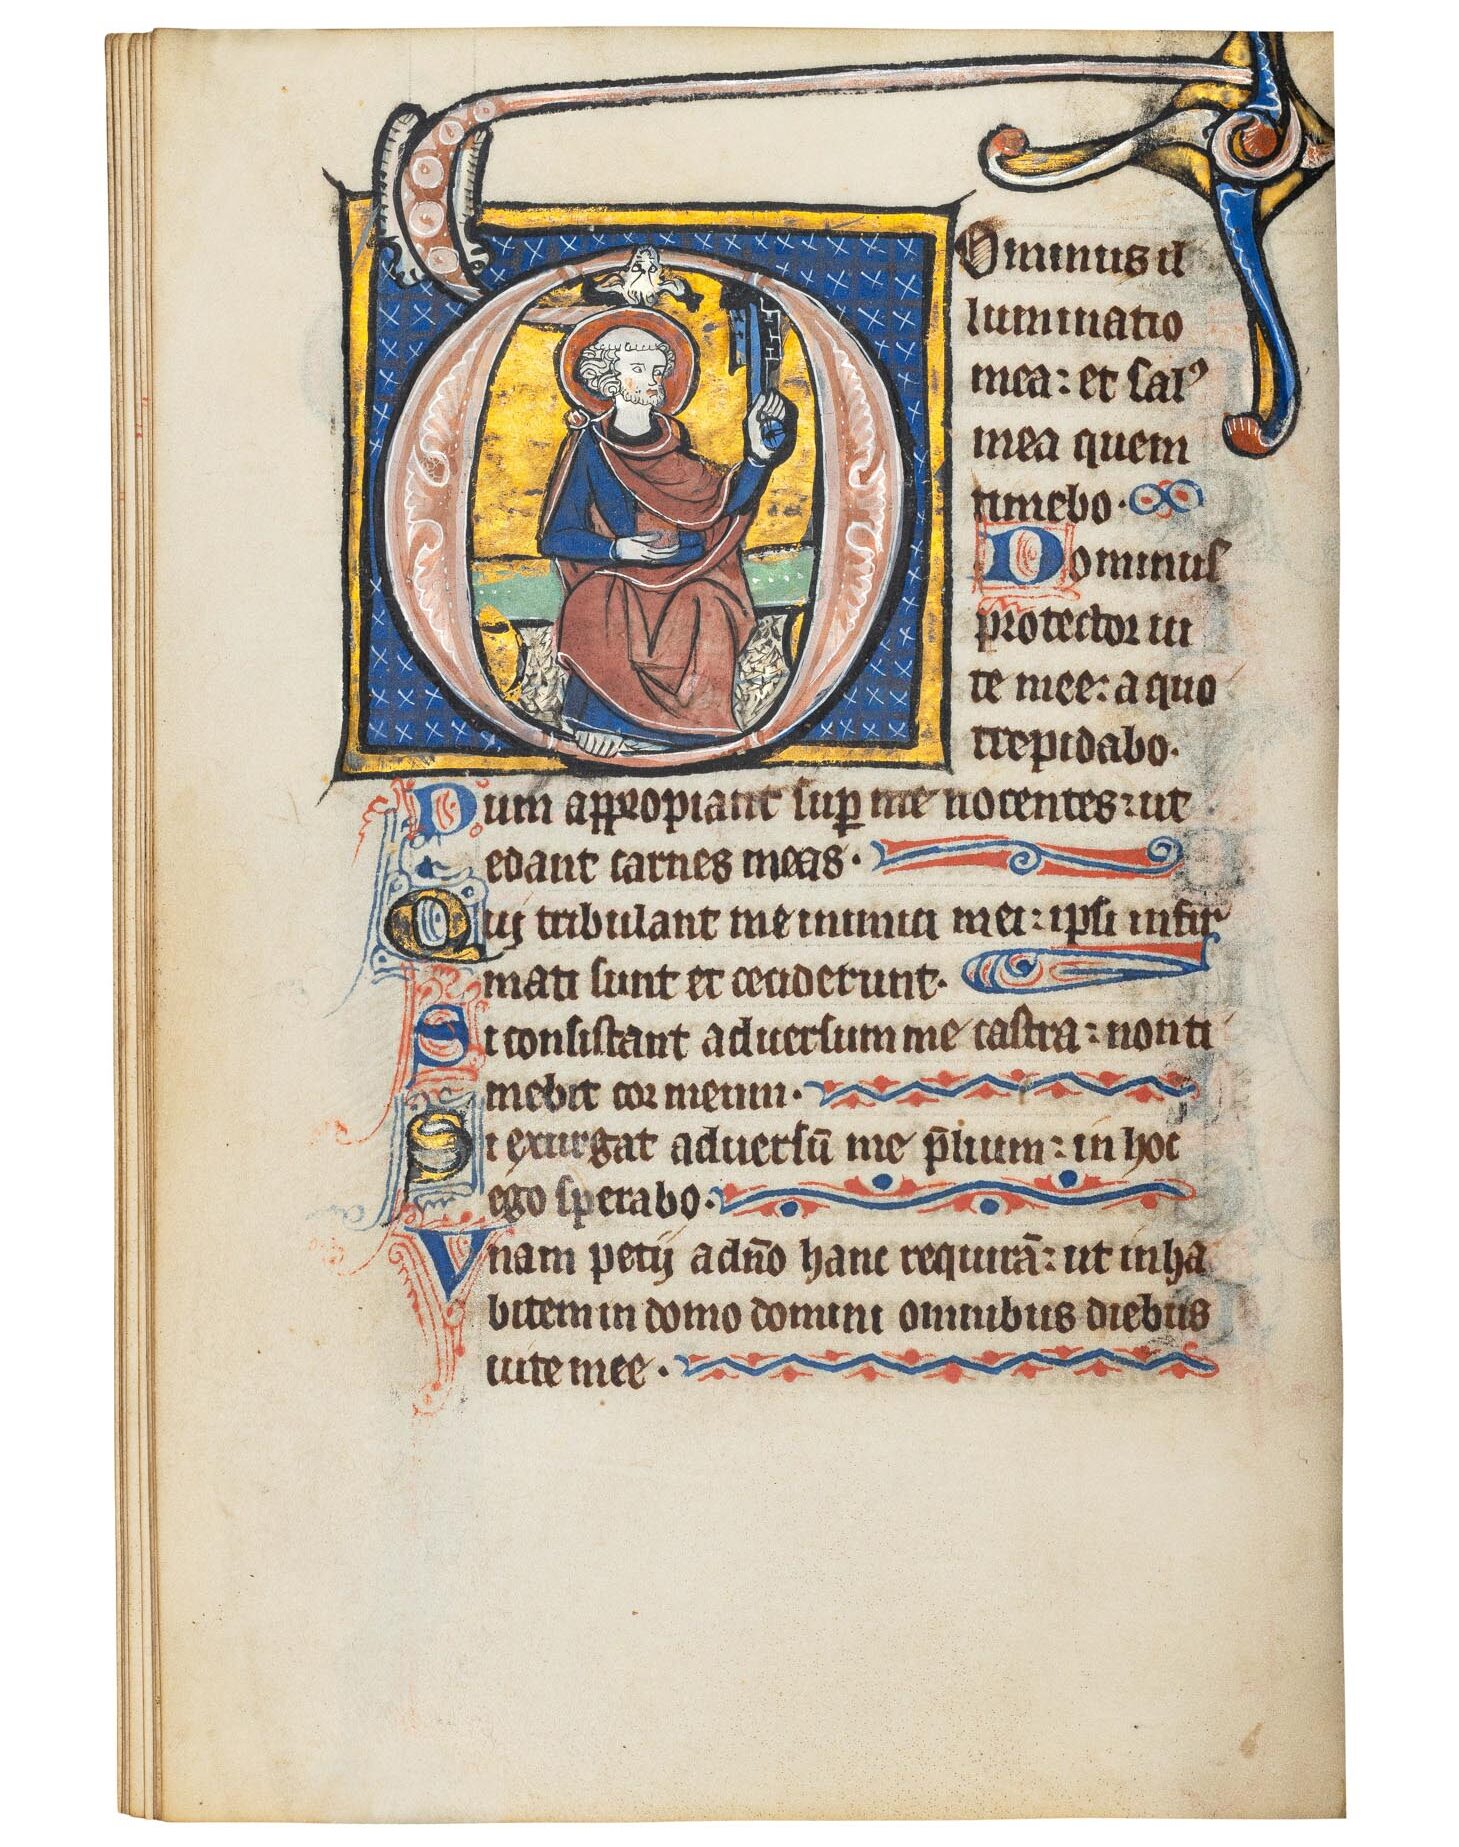 Dominus il
luminatio
mea: et salꝰ
mea quem
timebo.
Dominus
protector ui
te mee: a quo
trepidabo.
Dum appropiant sup̲ me nocentes: ut
edant carnes meas.
Quij tribulant me inimici mei: ipsi infir
mati sunt et ceciderunt.
Si consistant aduersum me castra: non ti
mebit cor meum.
Si exurgat aduersū me p̄lium: in hoc
ego sperabo.
Vnam petij a dn̄o hanc requirā: ut inha
bitem in domo domini omnibus diebus
uite mee.